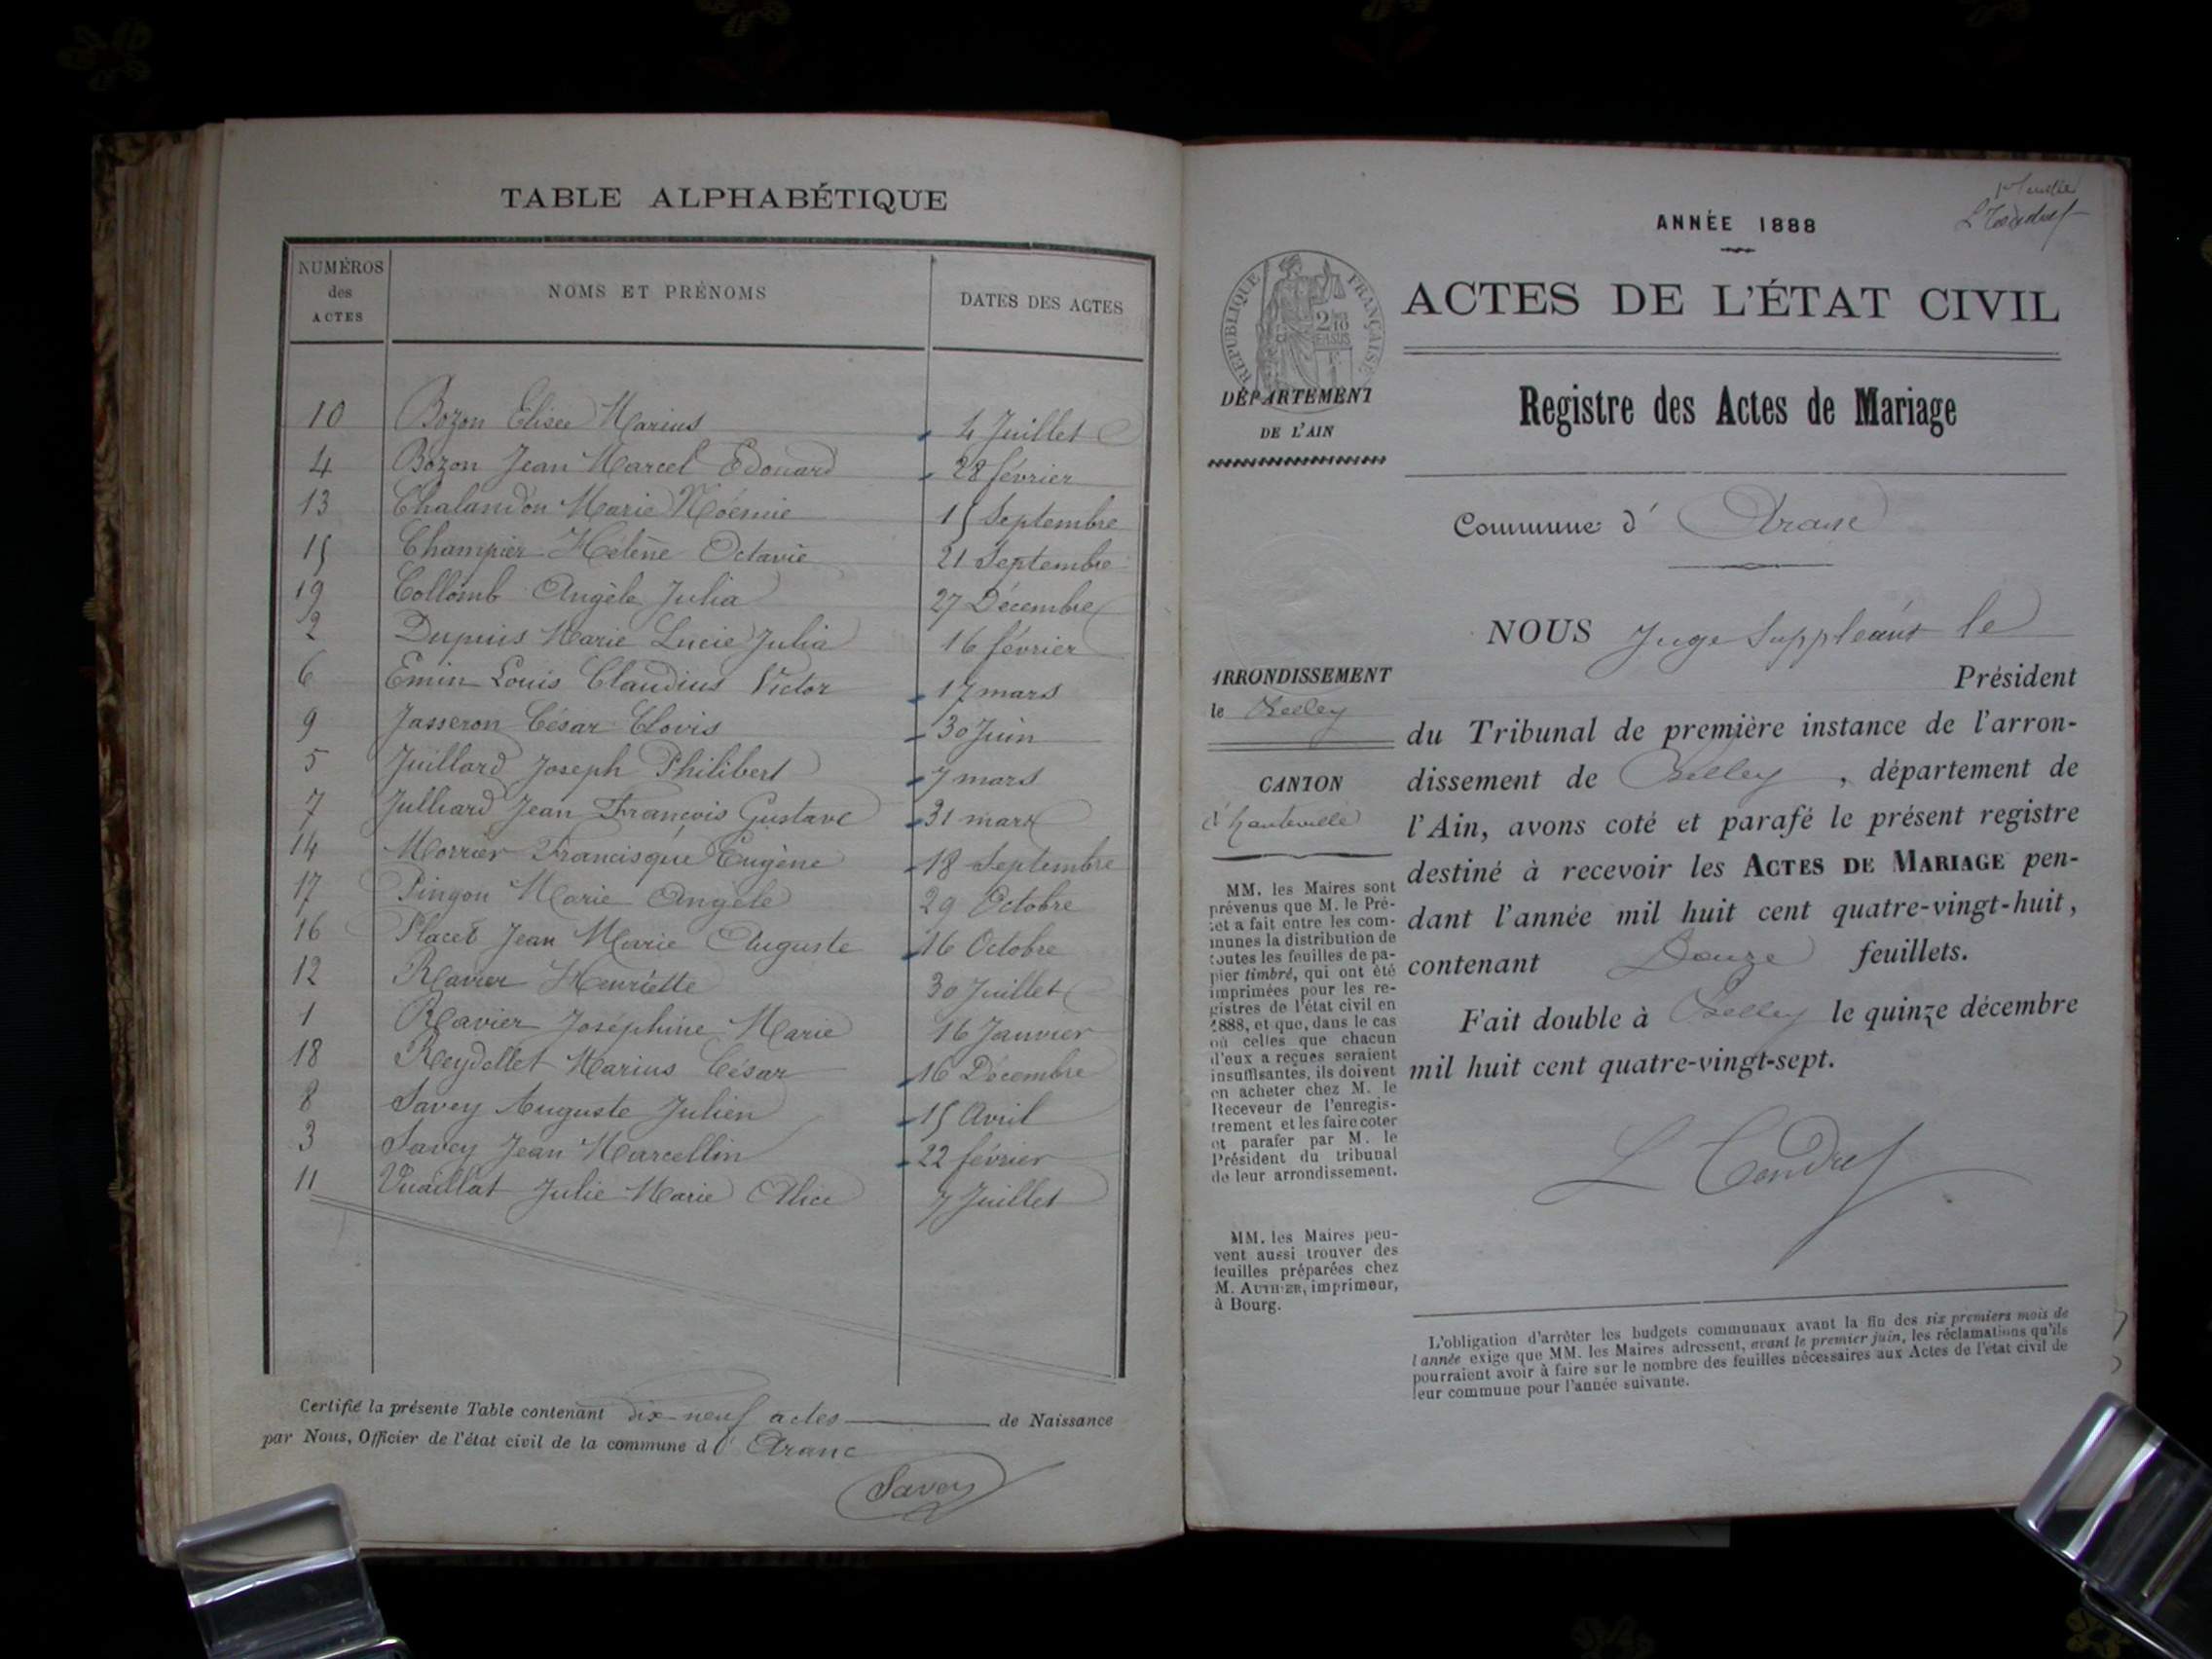 TABLE ALPHABÉTIQUE
NUMÉROS des ACTES
NOMS ET PRÉNOMS
DATES DES ACTES
10 Bozon Elisée Marius 4 Juillet
4 Bozon Jean Marcel Edouard 28 février
13 Chalandon Marie Noémie 15 Septembre
15 Champier Hélène Octavie 21 Septembre
19 Collomb Angèle Julia 27 Décembre
2 Dupuis Marie Lucie Julia 16 février
6 Emin Louis Claudius Victor 17 mars
9 Jasseron César Clovis 30 Juin
5 Juillard Joseph Philibert 7 mars
7 Julliard Jean François Gustave 31 mars
14 Morrier Francisque Eugène 18 Septembre
17 Pingon Marie Angèle 29 Octobre
16 Placet Jean Marie Auguste 16 Octobre
12 Ravier Henriette 30 Juillet
1 Ravier Joséphine Marie 16 Janvier
18 Reydellet Marius César 16 Décembre
8 Savey Auguste Julien 15 Avril
3 Savey Jean Marcellin 22 février
11 Vuaillat Julie Marie Alice 7 Juillet
Certifié la présente Table contenant dix-neuf actes de Naissance
par Nous, Officier de l'état civil de la commune d' Aranc
Savey
ANNÉE 1888
RÉPUBLIQUE FRANÇAISE
ACTES DE L'ÉTAT CIVIL
DÉPARTEMENT
DE L'AIN
Registre des Actes de Mariage
Commune d' Aranc
NOUS Juge Suppléant le
Président
du Tribunal de première instance de l'arron-
dissement de Belley, département de
l'Ain, avons coté et parafé le présent registre
destiné à recevoir les ACTES DE MARIAGE pen-
dant l'année mil huit cent quatre-vingt-huit,
contenant Douze feuillets.
Fait double à Belley le quinze décembre
mil huit cent quatre-vingt-sept.
ARRONDISSEMENT
de Belley
CANTON
d'hauteville
MM. les Maires sont
prévenus que M. le Pré-
fet a fait entre les com-
munes la distribution de
toutes les feuilles de pa-
pier timbré, qui ont été
imprimées pour les re-
gistres de l'état civil en
1888, et que, dans le cas
où celles que chacun
d'eux a reçues seraient
insuffisantes, ils doivent
en acheter chez M. le
Receveur de l'enregis-
trement et les faire coter
et parafer par M. le
Président du tribunal
de leur arrondissement.
MM. les Maires peu-
vent aussi trouver des
feuilles préparées chez
M. AUTHIER, imprimeur,
à Bourg.
L'obligation d'arrêter les budgets communaux avant la fin des six premiers mois de
l'année exige que MM. les Maires adressent, avant le premier juin, les réclamations qu'ils
pourraient avoir à faire sur le nombre des feuilles nécessaires aux Actes de l'état civil de
leur commune pour l'année suivante.